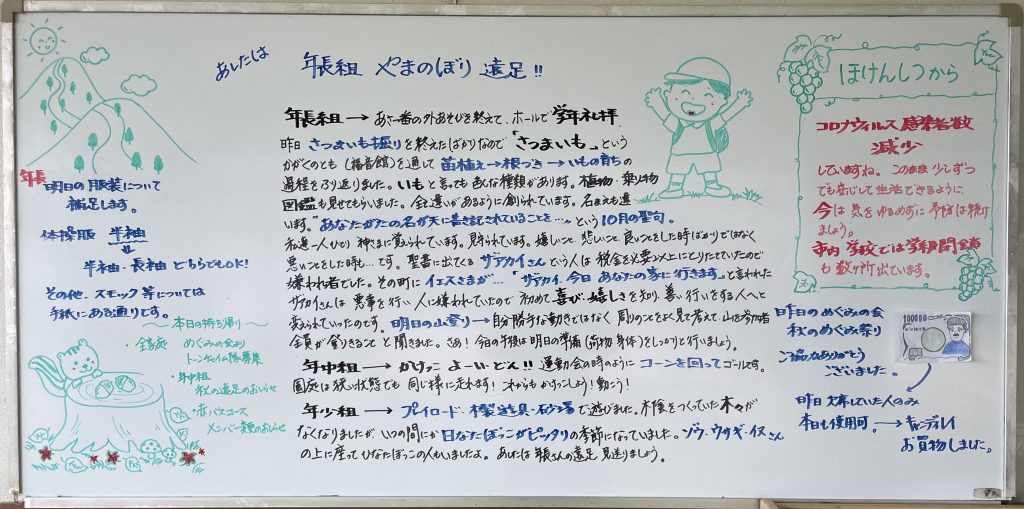 あしたは
年長組 やまのぼり 遠足!!
年長組→あさ一番の外あそびを終えて、ホールで学年礼拝
昨日 さつまいも掘りを終えたばかりなので「さつまいも」という
かがくのとも(福音館)を通して 苗植え→根つき→いもの育ちの
過程をふり返りました。いもと言っても色んな種類があります。植物・乗り物
図鑑も見せてもらいました。全て違いがあるように創られています。名まえも違
います。"あなたがたの名が天に書き記されていることを…"という10月の聖句。
私達一人ひとり 神さまに覚えられています。見守られています。嬉しいこと 悲しいこと 良いことをした時ばかりではなく
悪いことをした時も…です。聖書に出てくる ザアカイさんという人は 税金を必要以上にとりたてていたので
嫌われ者でした。その町にイエスさまが…「ザアカイ、今日 あなたの家に行きます」と言われた
ザアカイさんは 悪事を行い 人に嫌われていたので 初めて喜び・嬉しさを知り、善い行いをする人へと
変えられていったのです。明日の山登り→自分勝手な動きではなく 周りのことをよく見て考えて、山を
全員が登りきること と聞きました。さあ!今日の午後は明日の準備(荷物 身体)をしっかりと行いましょう。
年中組→かけっこ よーい・どん!! 運動会の時のように コーンを回ってゴールです。
園庭は狭い状態でも 同じ様に走れます!これからも かけっこしよう!動こう!
年少組→プレイロード・木製遊具・砂場で遊びました。木陰をつくっていた木々が
なくなりましたが、いつの間にか日なたぼっこがピッタリの季節になっていました。ゾウ・ウサギ・イヌさん
の上に座って ひなたぼっこの人もいましたよ。あしたは 年長さんの遠足 見送りましょう。
年長
明日の服装について
補足します。
体操服 半袖
半袖・長袖 どちらでもOK!
その他、スモック等については
手紙にある通りです。
〜本日の持ち帰り〜
・全家庭 めぐみの会より
トンチャイム隊募集
・年中組
秋の遠足のおしらせ
・赤バスコース
メンバー変更のおしらせ
ほけんしつから
コロナウィルス感染者数
減少
していますね。このまま 少しずつ
でも安心して生活できるように
今は 気をゆるめずに 予防は続け
ましょう。
市内 学校では学級閉鎖
も 数ヶ所出ています。
昨日のめぐみの会
秋のめぐみ祭り
ご協力ありがとう
ございました。
昨日 欠席していた人のみ
本日も使用可。→キャンディレイ
お買物しました。